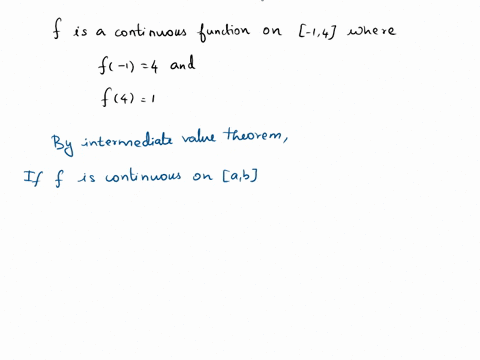 f is a continuous function on [-1,4] where
f(-1) = 4 and
f(4) = 1
By intermediate value theorem,
If f is continuous on [a,b]